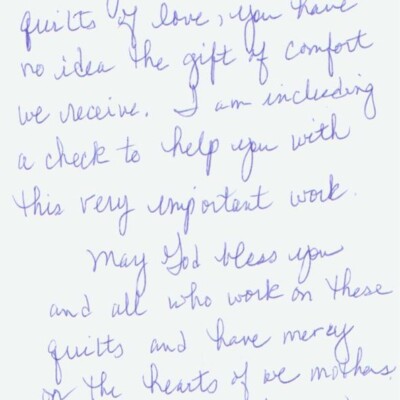 quilts of love, you have
no idea the gift of comfort
we receive. I am including
a check to help you with
this very important work.
May God bless you
and all who work on these
quilts and have mercy
on the hearts of we mothers